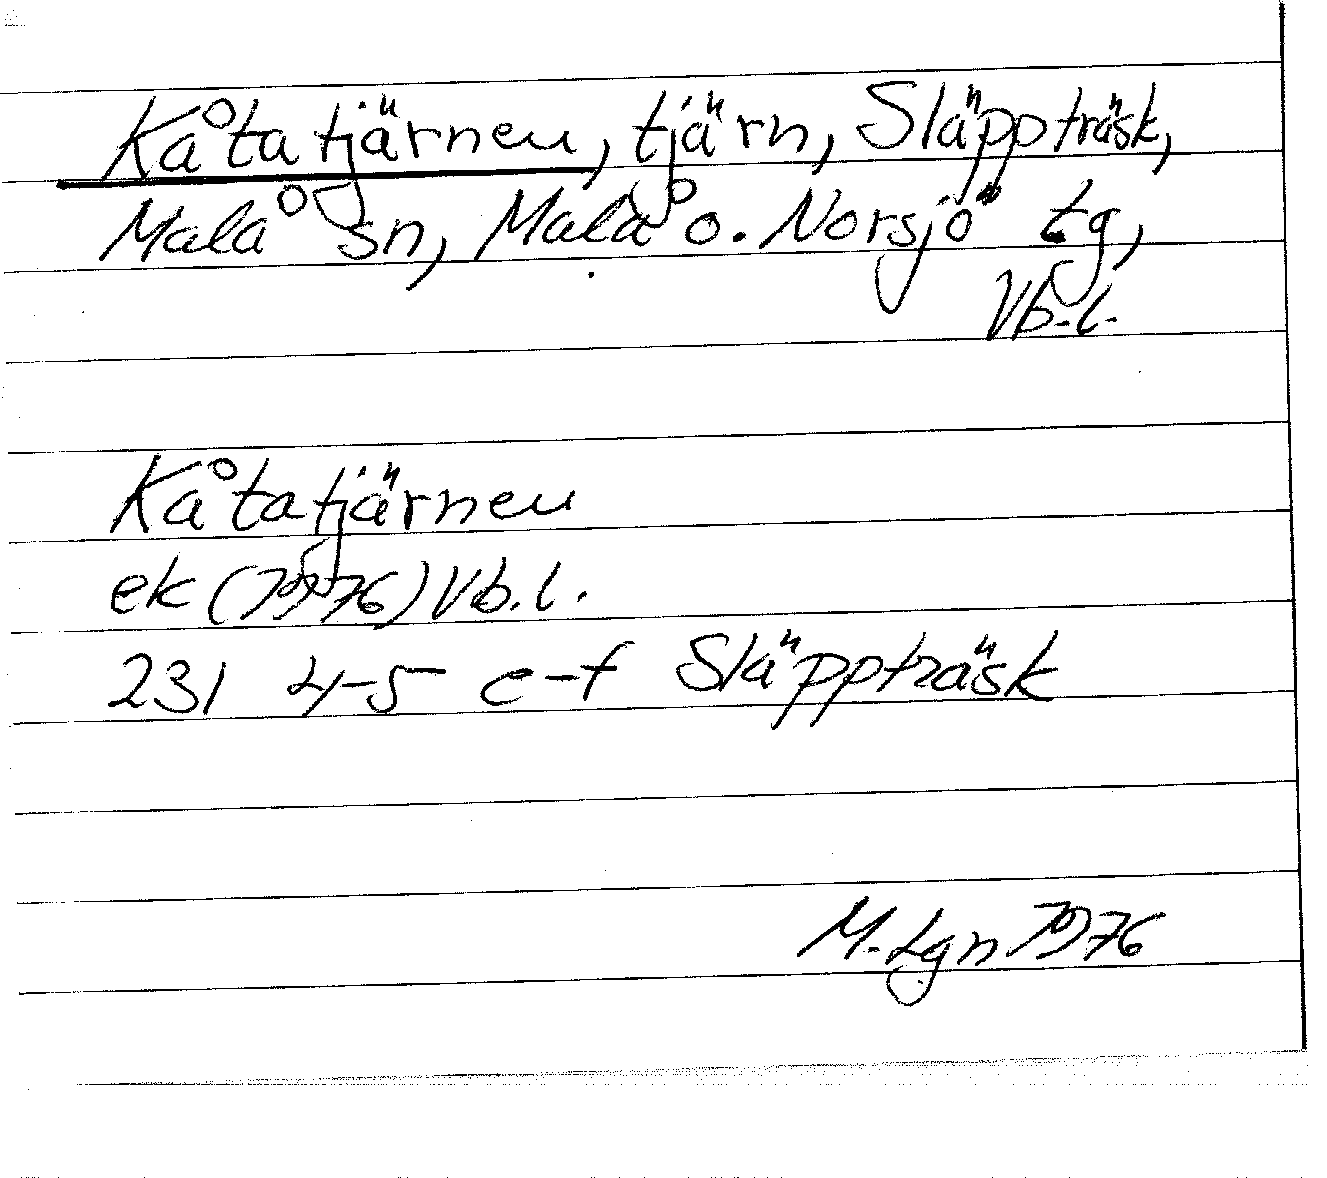 Kåtatjärnen, tjärn, Släppträsk,
Malå sn, Malå o. Norsjö tg,
Vb.l.
Kåtatjärnen
ek (1976) Vb.l.
231 4-5 e-f Släppträsk
M. Lgn 1976